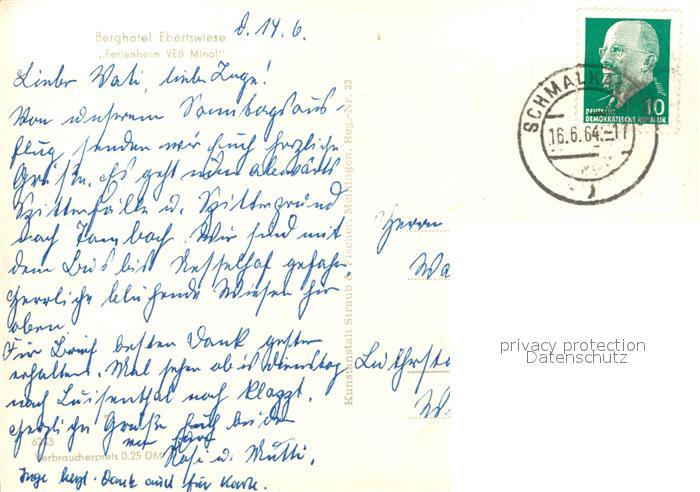 Berghotel Ebertswiese
„Ferienheim VEB Minol“
d. 14. 6.
Lieber Vati, liebe Inge!
Von unserem Sonntagsaus-
flug senden wir Euch herzliche
Grüße. Es geht nun abwärts
Spitterfälle u. Spittergrund
nach Tambach. Wir sind mit
dem Bus bis Nesselhof gefahren
Herrliche blühende Wiesen hier
oben.
Für Brief besten Dank gestern
erhalten. Mal sehen ob es Dienstag
nach Luisenthal noch klappt.
Herzliche Grüße Euch beiden
Rosi u. Mutti.
Inge herzl. Dank auch für Karte.
6243
Verbraucherpreis 0,25 DM
Kunstanstalt Straub & Fischer, Meiningen, Reg.-Nr. 23
DEUTSCHE
DEMOKRATISCHE REPUBLIK
10
SCHMALK
16.6.64.-17
Herrn
Wa
Lutherstadt
Wi
privacy protection
Datenschutz